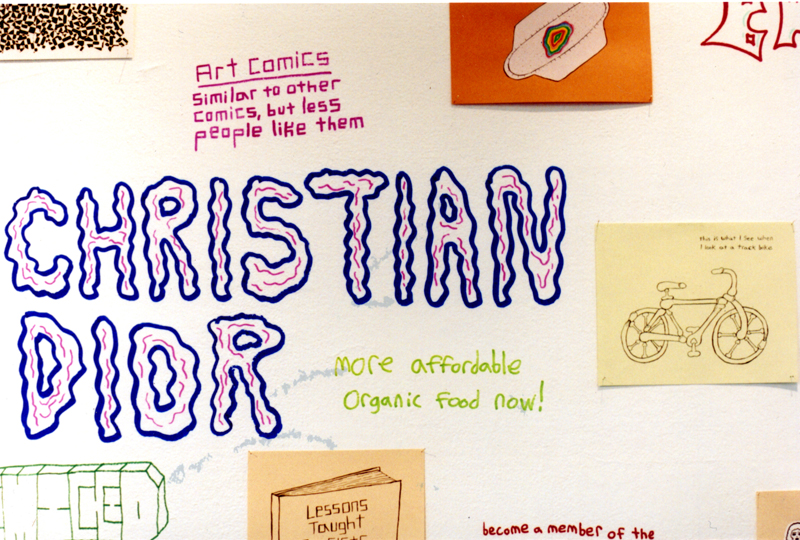 Art Comics
Similar to other
comics, but less
people like them
CHRISTIAN
DIOR
this is what I see when
I look at a track bike
more affordable
Organic food now!
Lessons
Taught
become a member of the